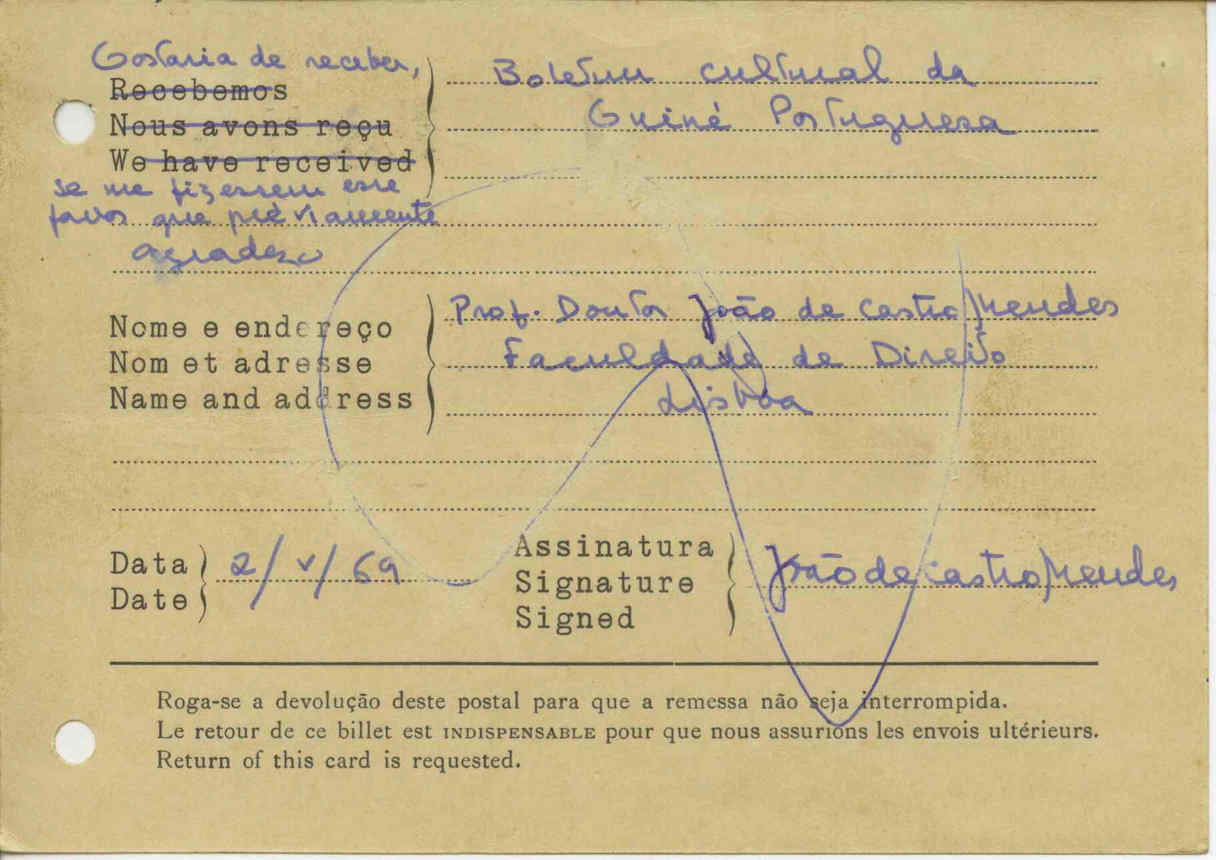 Gostaria de receber,
Recebemos
Nous avons reçu
We have received
Boletim cultural da
Guiné Portuguesa
se me fizessem esse
favor que préviamente
agradeço
Nome e endereço
Nom et adresse
Name and address
Prof. Doutor João de Castro Mendes
Faculdade de Direito
Lisboa
Data
Date
2/V/69
Assinatura
Signature
Signed
João de Castro Mendes
Roga-se a devolução deste postal para que a remessa não seja interrompida.
Le retour de ce billet est INDISPENSABLE pour que nous assurions les envois ultérieurs.
Return of this card is requested.